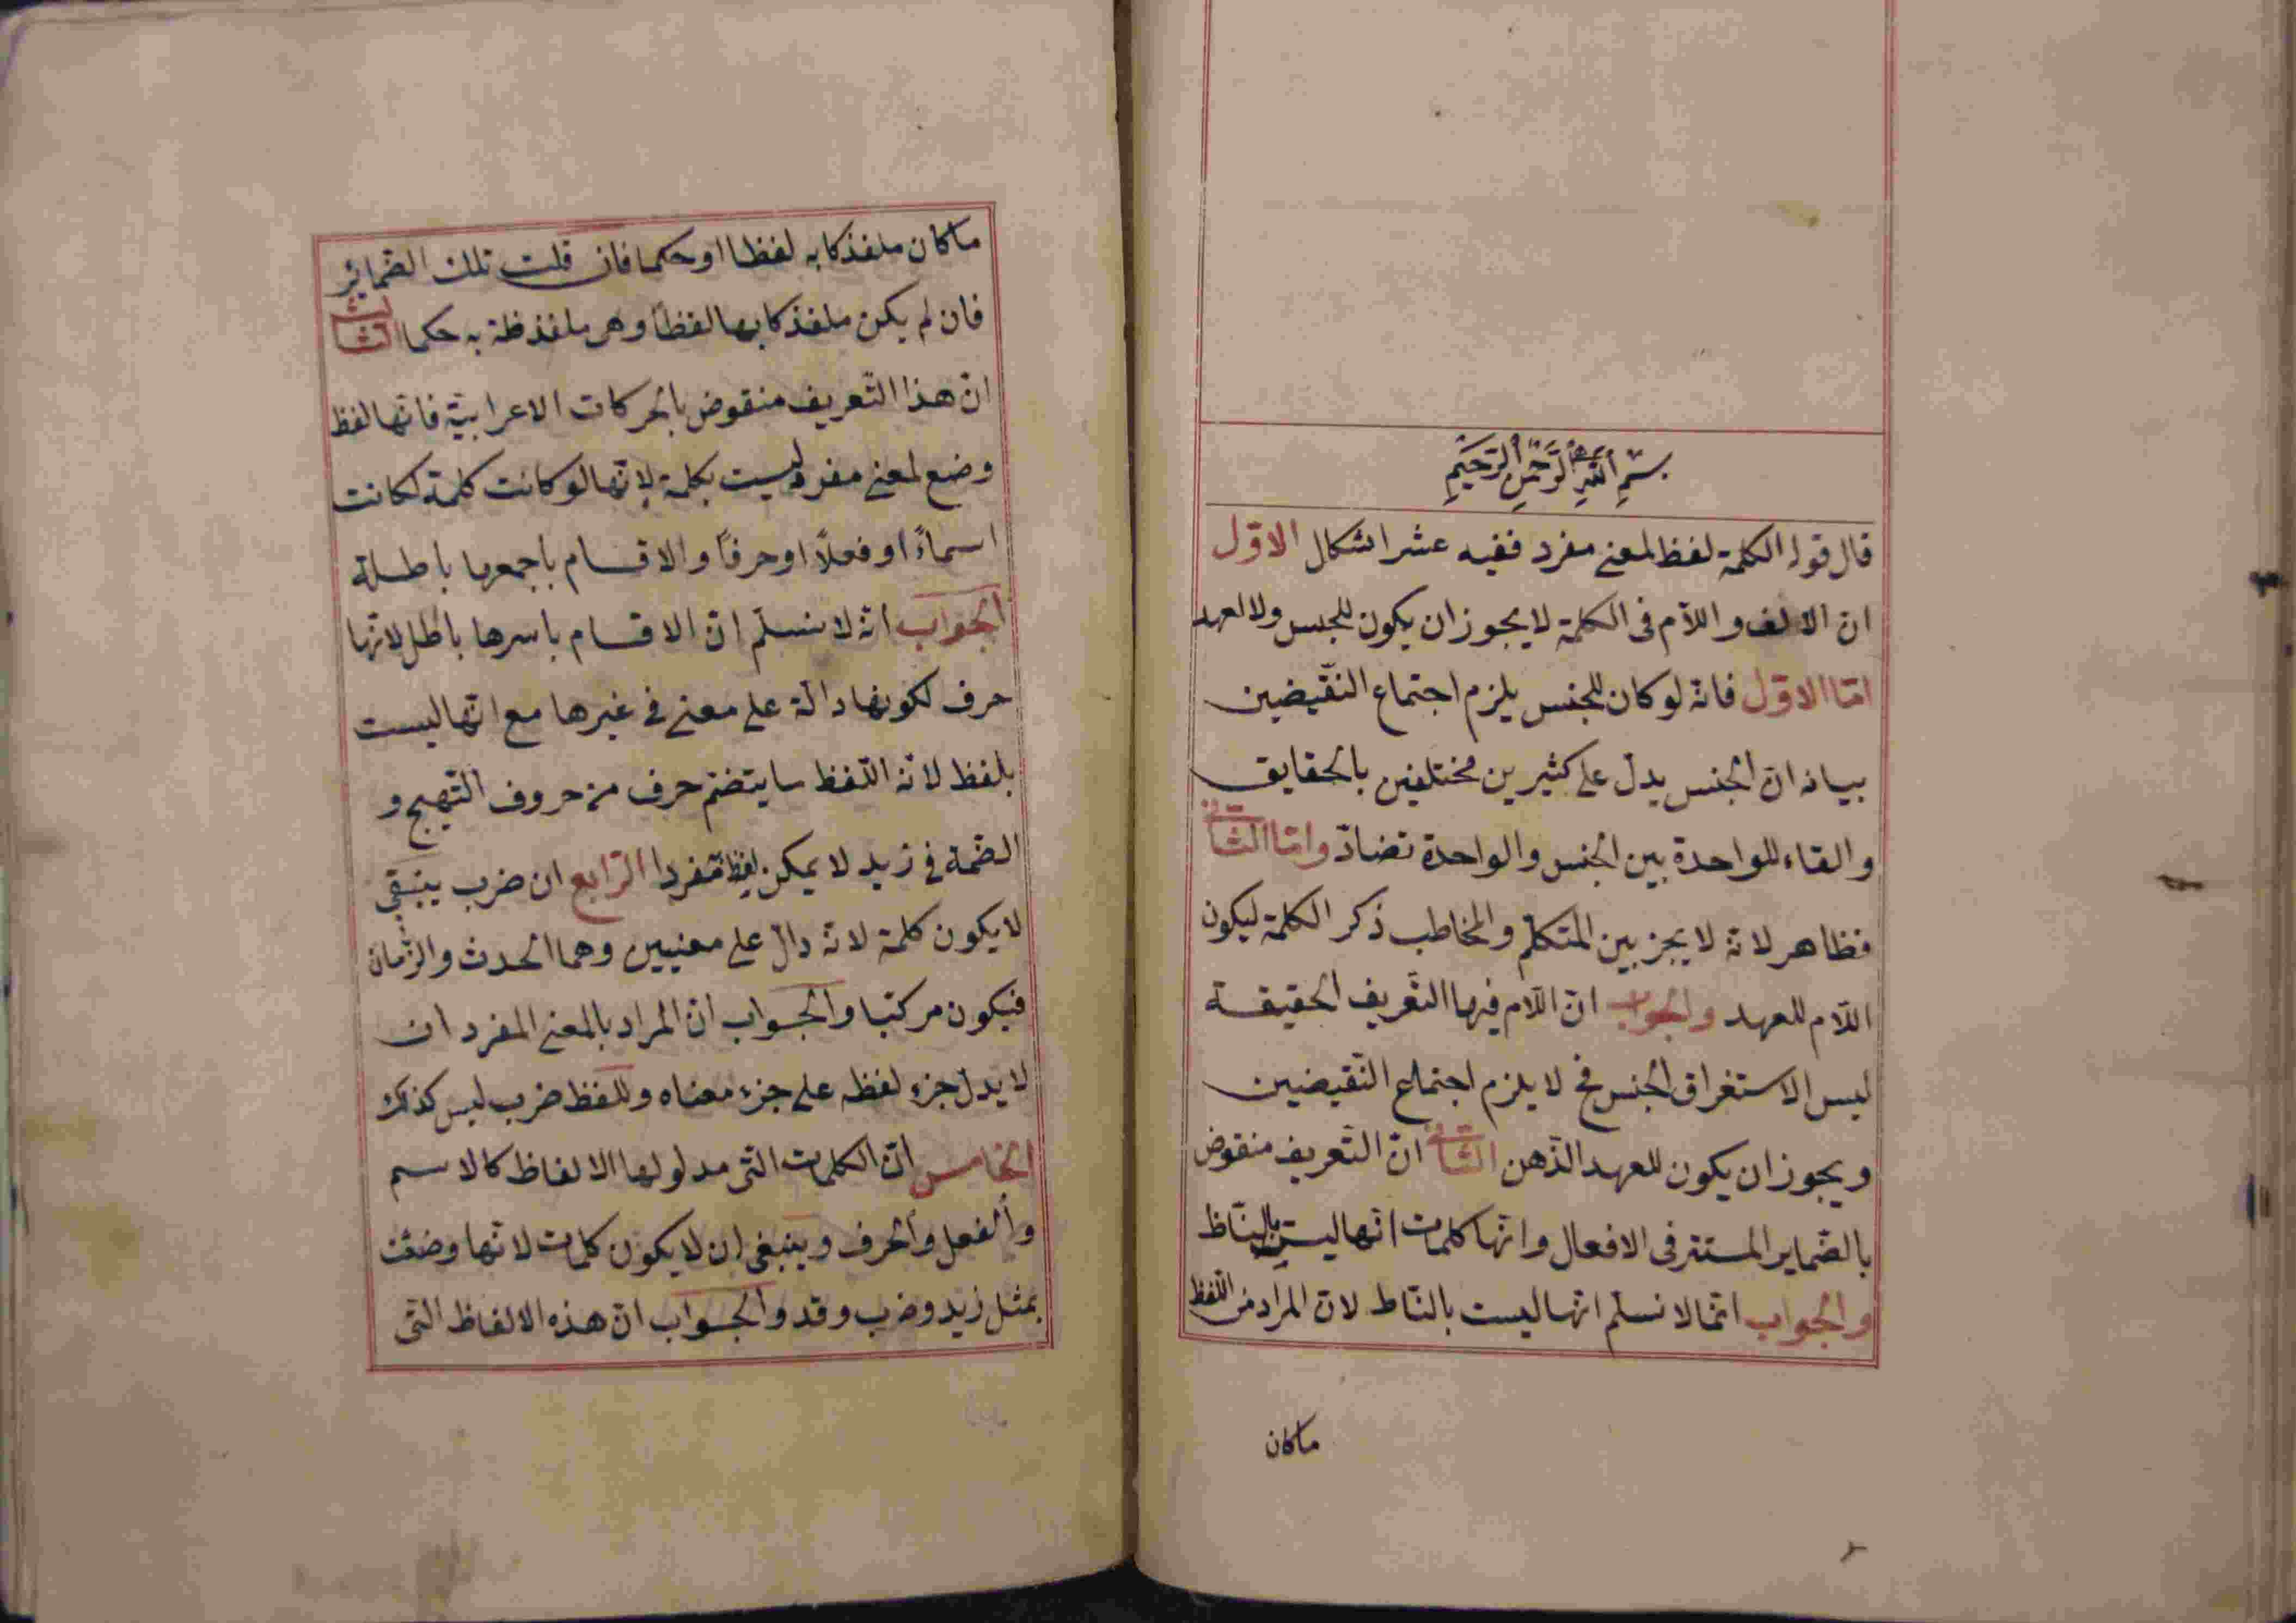 بسم الله الرحمن الرحيم
قال قوله الكلمة لفظ لمعنى مفرد ففيه عشر اشكال الاوّل
ان الالف واللاّم فى الكلمة لا يجوز ان يكون للجنس ولا لعهد
امّا الاوّل فانّه لو كان للجنس يلزم اجتماع النقّيضين
بيانه انّ الجنس يدلّ على كثيرين مختلفين بالحقايق
والقاء للواحدة بين الجنس والواحدة تضادّ وامّا الثّانى
فظاهر لانّه لا يجز بين المتكلّم والمخاطب ذكر الكلمة ليكون
اللاّم للعهد والجواب انّ اللاّم فيها التّعريف الحقيقة
ليس الاستغراق الجنس فح لا يلزم اجتماع النّقيضين
ويجوز ان يكون للعهد الذّهن الثّانى انّ التّعريف منقوض
بالضّماير المستتر فى الافعال وانّها كلمات انّها ليست
والجواب انّما لا نسلّم انّها ليست بالنّاط لانّ المراد من اللّفظ
ماكان
ماكان ملفذكا به لفظا او حكما فان قلت تلك الضّماير
فان لم يكن ملفذكا بها لفظاً وهى ملفذظة به حكما الثّالث
انّ هذا التّعريف منقوض بالحركات الاعرابيّة فانّها لفظ
وضع لمعنى مفرد ليست بكلمة لانّها لو كانت كلمة لكانت
اسماءً او فعلاً او حرفاً والاقسام باجمعها باطلة
الجواب انّه لا نسلّم انّ الاقسام باسرها باطل لانّها
حرف لكونها دالّة على معنى فى غيرها مع انّها ليست
بلفظ لانّه اللّفظ ما يتضمّ حرف من حروف التّهجى و
الضّمة فى زيد لا يمكن لفظ مفردا الرّابع ان ضرب ينبقى
لا يكون كلمة لانّه دالّ على معنيين وهما الحدث والزّمان
فيكون مركبّا والجواب انّ المراد بالمعنى المفرد ان
لا يدلّ جزء لفظه على جزء معناه وللفظ ضرب ليس كذلك
الخامس انّ الكلمات التّى مدلولها الالفاظ كالاسم
والفعل والحرف وينبغى ان لا يكون كلمات لانّها وضعت
بمثل زيد وضرب وقد والجواب انّ هذه الالفاظ التّى